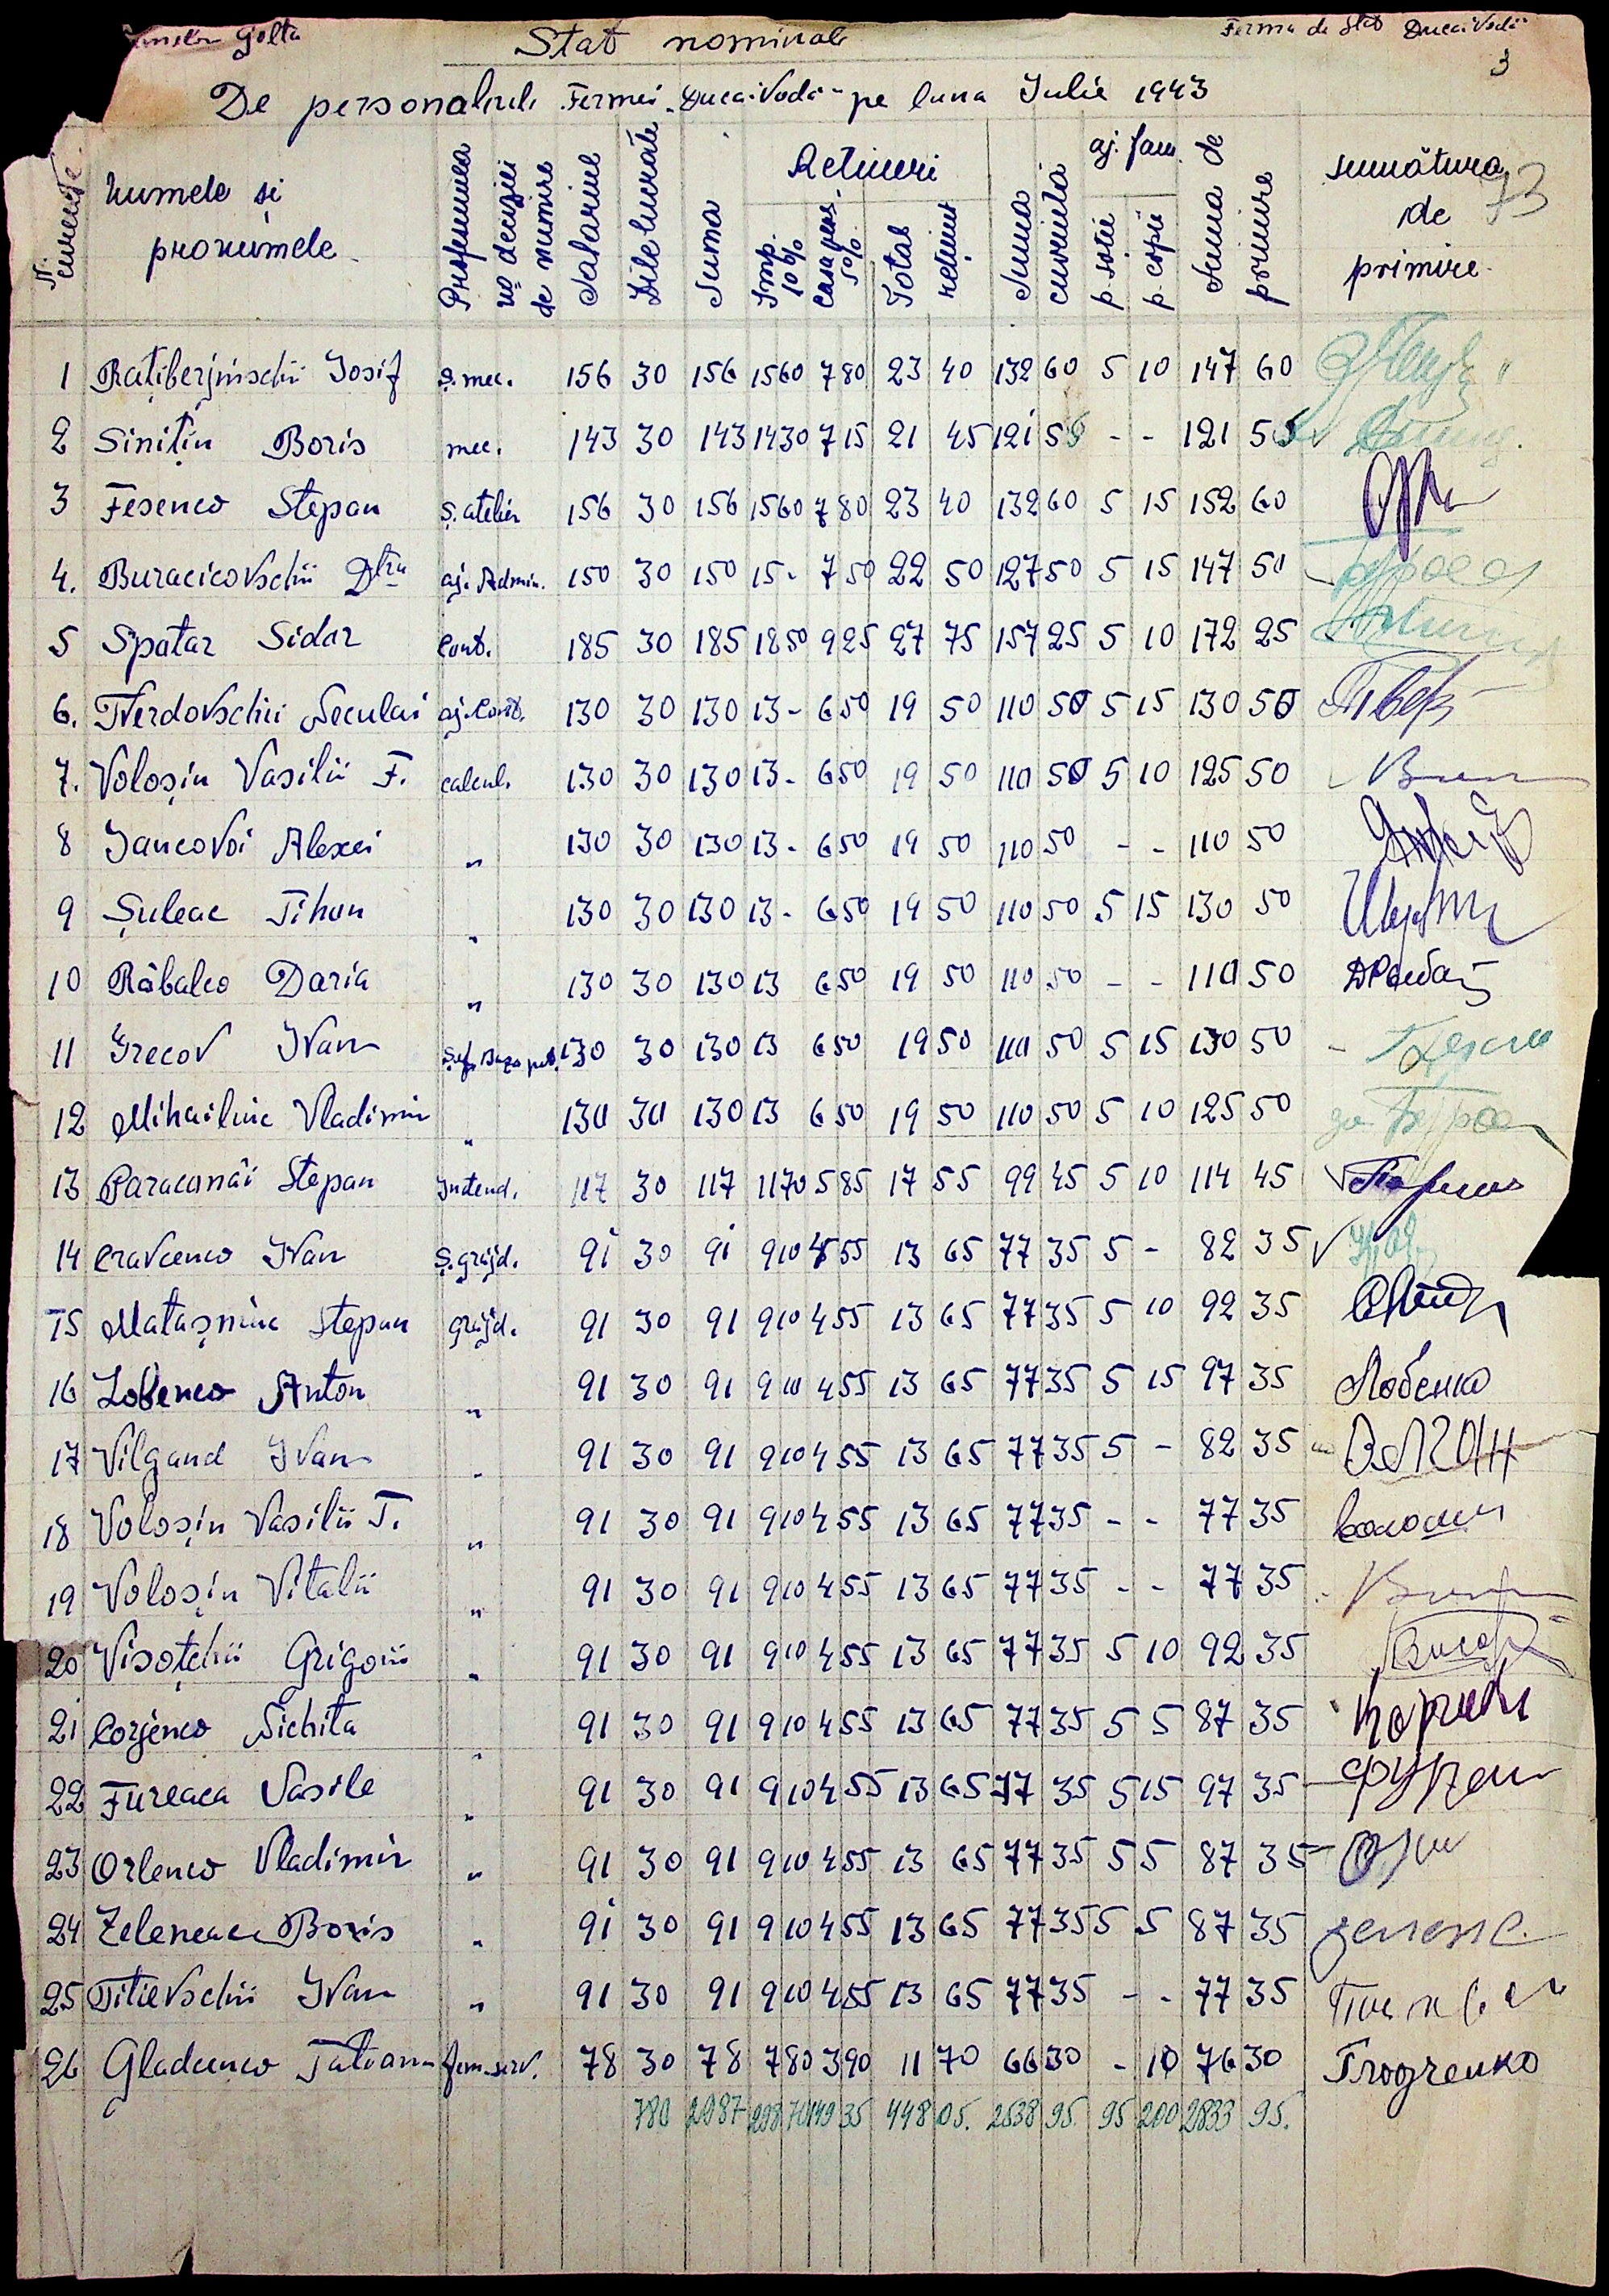 Golta
Stat nominal
Ferma de Stat Duca-Vodă
3
De personalul Fermei „Duca-Vodă" pe luna Iulie 1943
73
N. curente
Numele si pronumele
Profesiunea No deciziei de numire
Salariul
Zile lucrate
Suma
Retineri
Imp. 10%
Casa pens. 5%
Total retinut
Suma cuvenită
aj. fam.
p. soție
p. copii
Suma de primire
semnătura de primire
1 Rațiberjinschi Iosif ș. mec. 156 30 156 15 60 7 80 23 40 132 60 5 10 147 60
2 Sinițin Boris mec. 143 30 143 14 30 7 15 21 45 121 55 - - 121 55
3 Fesenco Stepan ș. atelier 156 30 156 15 60 7 80 23 40 132 60 5 15 152 60
4. Buracicovschii Dtru aj. Admin. 150 30 150 15 - 7 50 22 50 127 50 5 15 147 50
5 Spatar Sidor Cont. 185 30 185 18 50 9 25 27 75 157 25 5 10 172 25
6. Tverdovschii Neculai aj. Cont. 130 30 130 13 - 6 50 19 50 110 50 5 15 130 50
7. Voloșin Vasilii F. calcul. 130 30 130 13 - 6 50 19 50 110 50 5 10 125 50
8 Iancovoi Alexei " 130 30 130 13 - 6 50 19 50 110 50 - - 110 50
9 Șuleac Tihon " 130 30 130 13 - 6 50 19 50 110 50 5 15 130 50
10 Râbalco Daria " 130 30 130 13 6 50 19 50 110 50 - - 110 50
11 Grecov Ivan 130 30 130 13 6 50 19 50 110 50 5 15 130 50
12 Mihailiuc Vladimir " 130 30 130 13 6 50 19 50 110 50 5 10 125 50
13 Paracimăi Stepan Intend. 117 30 117 11 70 5 85 17 55 99 45 5 10 114 45
14 Cravcenco Ivan ș. grăjd. 91 30 91 9 10 4 55 13 65 77 35 5 - 82 35
15 Matașniuc Stepan grăjd. 91 30 91 9 10 4 55 13 65 77 35 5 10 92 35
16 Lobenco Anton " 91 30 91 9 10 4 55 13 65 77 35 5 15 97 35 Лобенко
17 Vilgand Ivan " 91 30 91 9 10 4 55 13 65 77 35 5 - 82 35
18 Voloșin Vasilii T. " 91 30 91 9 10 4 55 13 65 77 35 - - 77 35
19 Voloșin Vitalii " 91 30 91 9 10 4 55 13 65 77 35 - - 77 35
20 Visoțchii Grigorii " 91 30 91 9 10 4 55 13 65 77 35 5 10 92 35
21 Corjenco Nichita " 91 30 91 9 10 4 55 13 65 77 35 5 5 87 35
22 Fureaca Vasile " 91 30 91 9 10 4 55 13 65 77 35 5 15 97 35
23 Orlenco Vladimir " 91 30 91 9 10 4 55 13 65 77 35 5 5 87 35
24 Zeleneac Boris " 91 30 91 9 10 4 55 13 65 77 35 5 5 87 35
25 Titievschii Ivan " 91 30 91 9 10 4 55 13 65 77 35 - - 77 35
26 Gladcenco Tatiana fem. serv. 78 30 78 7 80 3 90 11 70 66 30 - 10 76 30
780 2987 298 70 149 35 448 05. 2538 95. 95 200 2833 95.